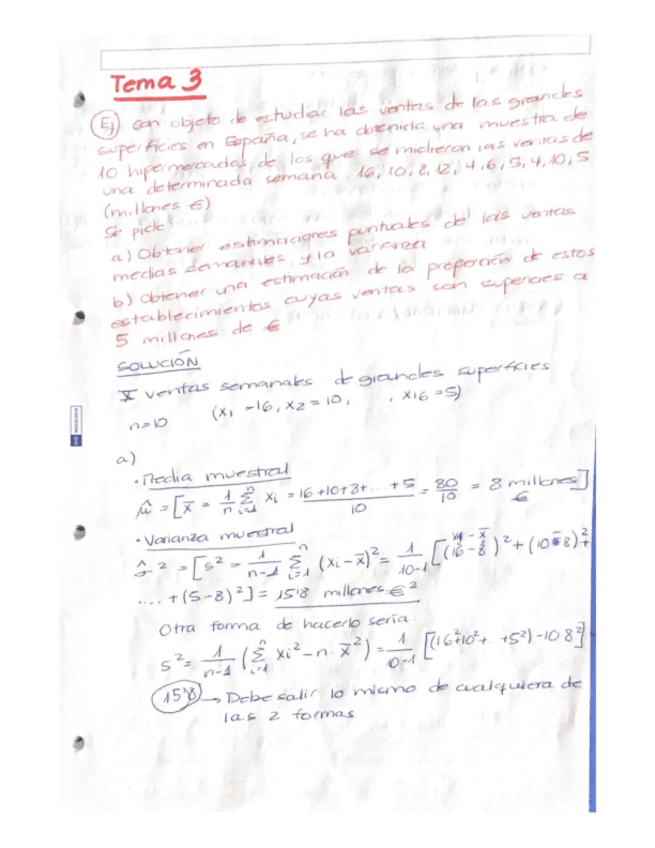 Tema 3
Ej con objeto de estudiar las ventas de las grandes
superficies en España, se ha obtenido una muestra de
10 hipermercados, de los que se midieron las ventas de
una determinada semana 16, 10, 8, 12, 4, 6, 5, 4, 10, 5
(millones €)
Se pide
a) Obtener estimaciones puntuales de las ventas
medias semanales y la varianza
b) Obtener una estimación de la proporción de estos
establecimientos cuyas ventas son superiores a
5 millones de €
SOLUCIÓN
X ventas semanales de grandes superficies
n=10 (x1 =16, x2 = 10, ..., x16 = 5)
a)
· Media muestral
μ̂ = [x̄ = 1/n Σ(i=1→n) xi = 16+10+8+...+5/10 = 80/10 = 8 millones] €
· Varianza muestral
σ̂² = [s² = 1/n-1 Σ(i=1→n) (xi - x̄)² = 1/10-1 [(16-8)² + (10-8)² +
... + (5-8)²] = 15'8 millones €²
Otra forma de hacerlo sería
s² = 1/n-1 (Σ(i=1→n) xi² - n · x̄²) = 1/10-1 [(16²+10²+ +5²) - 10 8²]
15'8 → Debe salir lo mismo de cualquiera de
las 2 formas